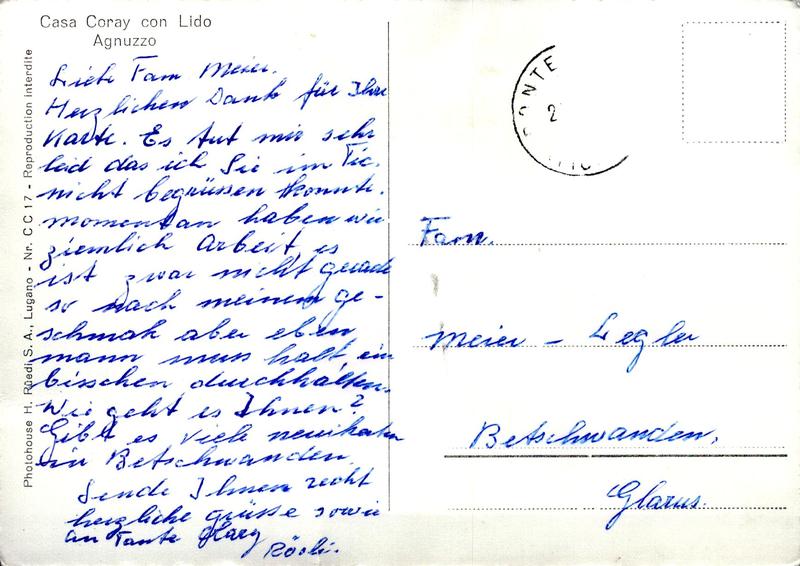 Casa Coray con Lido
Agnuzzo
Photohouse H. Rüedi S. A., Lugano - Nr. CC 17 - Reproduction interdite
Liebe Fam Meier.
Herzlichen Dank für Ihre
Karte. Es tut mir sehr
leid das ich Sie im Tic.
nicht begrüssen konnte.
momentan haben wir
ziemlich Arbeit, es
ist zwar nicht gerade
so nach meinem ge-
schmak aber eben
mann muss halt ein
bisschen durchhalten.
Wie geht es Ihnen?
Gibt es viele neuikeiten
in Betschwanden
Sende Ihnen recht
herzliche grüsse sowie
an Tante
Rösli.
PONTE
2
Fam.
Meier - Legler
Betschwanden,
Glarus.